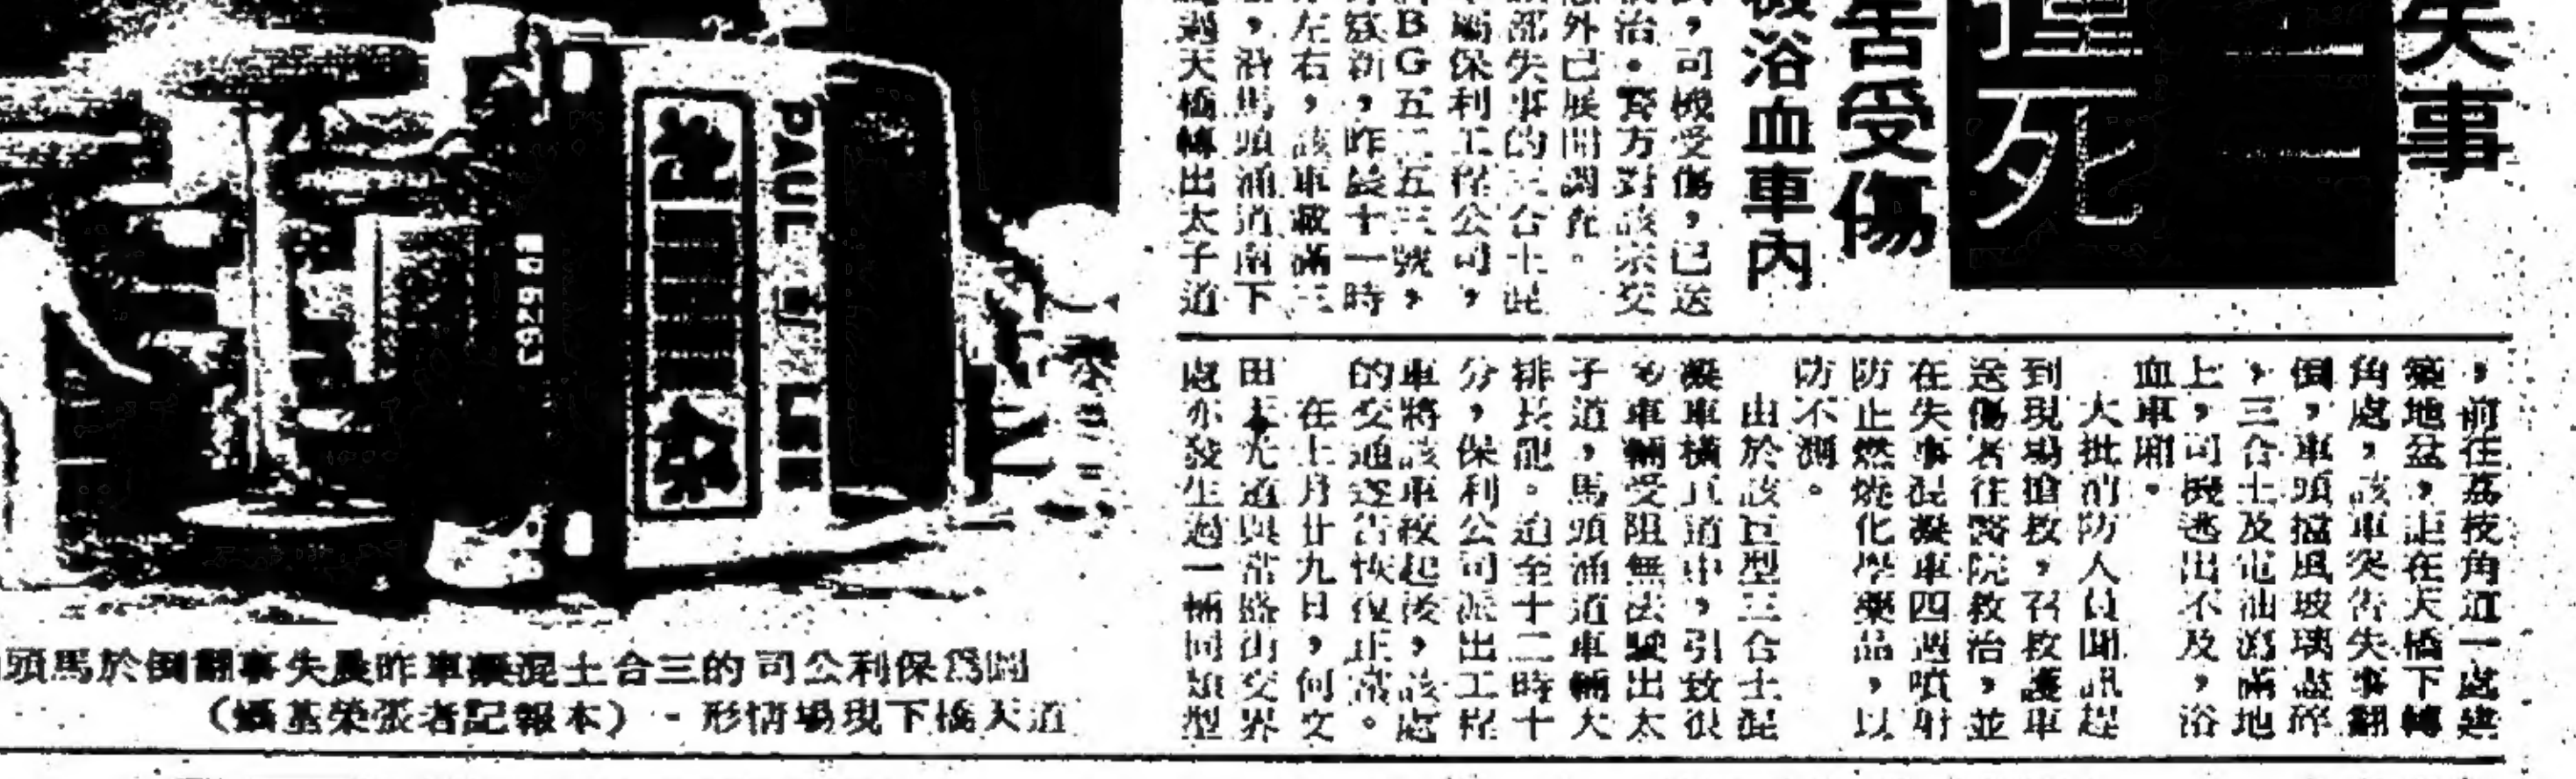 失事
死
害受傷
浴血車內
，司機受傷，已送
治。警方對該宗交
外已展開調查。
部失事的三合土混
屬保利工程公司，
BG五二五三號，
發新，昨晨十一時
左右，該車載滿三
，沿馬頭涌道南下
過天橋轉出太子道
，前往荔枝角道一處建
築地盆，詎在天橋下轉
角處，該車突告失事翻
倒，車頭擋風玻璃盡碎
，三合土及電油瀉滿地
上，司機逃出不及，浴
血車廂。
大批消防人員聞訊趕
到現場搶救，召救護車
送傷者往醫院救治，並
在失事混凝車四週噴射
防止燃燒化學藥品，以
防不測。
由於該巨型三合土混
凝車橫亘道中，引致很
多車輛受阻無法駛出太
子道，馬頭涌道車輛大
排長龍。迨至十二時十
分，保利公司派出工程
車將該車校起後，該處
的交通遂告恢復正常。
在上月廿九日，何文
田太光道與常盛街交界
處亦發生過一輛同類型
PAUL
頭馬於倒翻事失晨昨車凝混土合三的司公利保為圖
（攝基榮張者記報本）．形情場現下橋天道